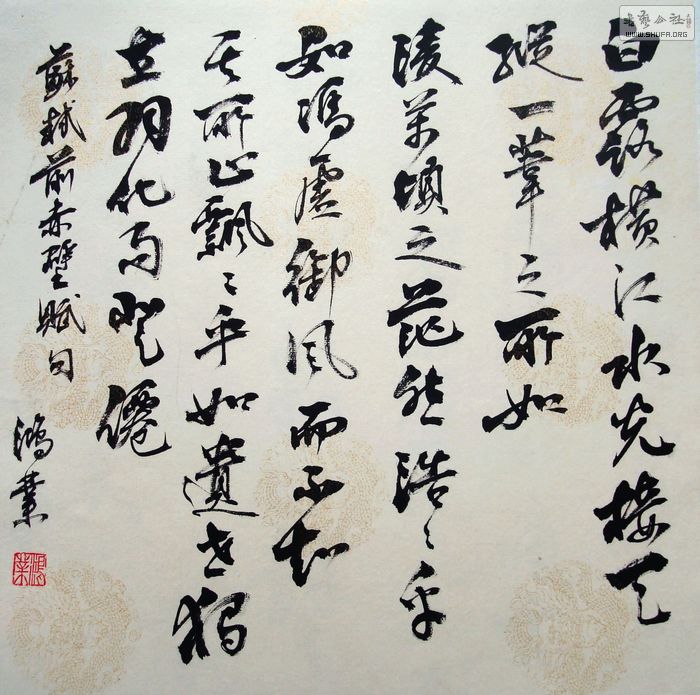 白露橫江水光接天
縱一葦之所如
淩萬頃之茫然浩々乎
如馮虛御風而不知
其所止飄々乎如遺世獨
立羽化而登僊
蘇軾前赤壁賦句
鴻業
鴻業
WWW.SHUFA.ORG